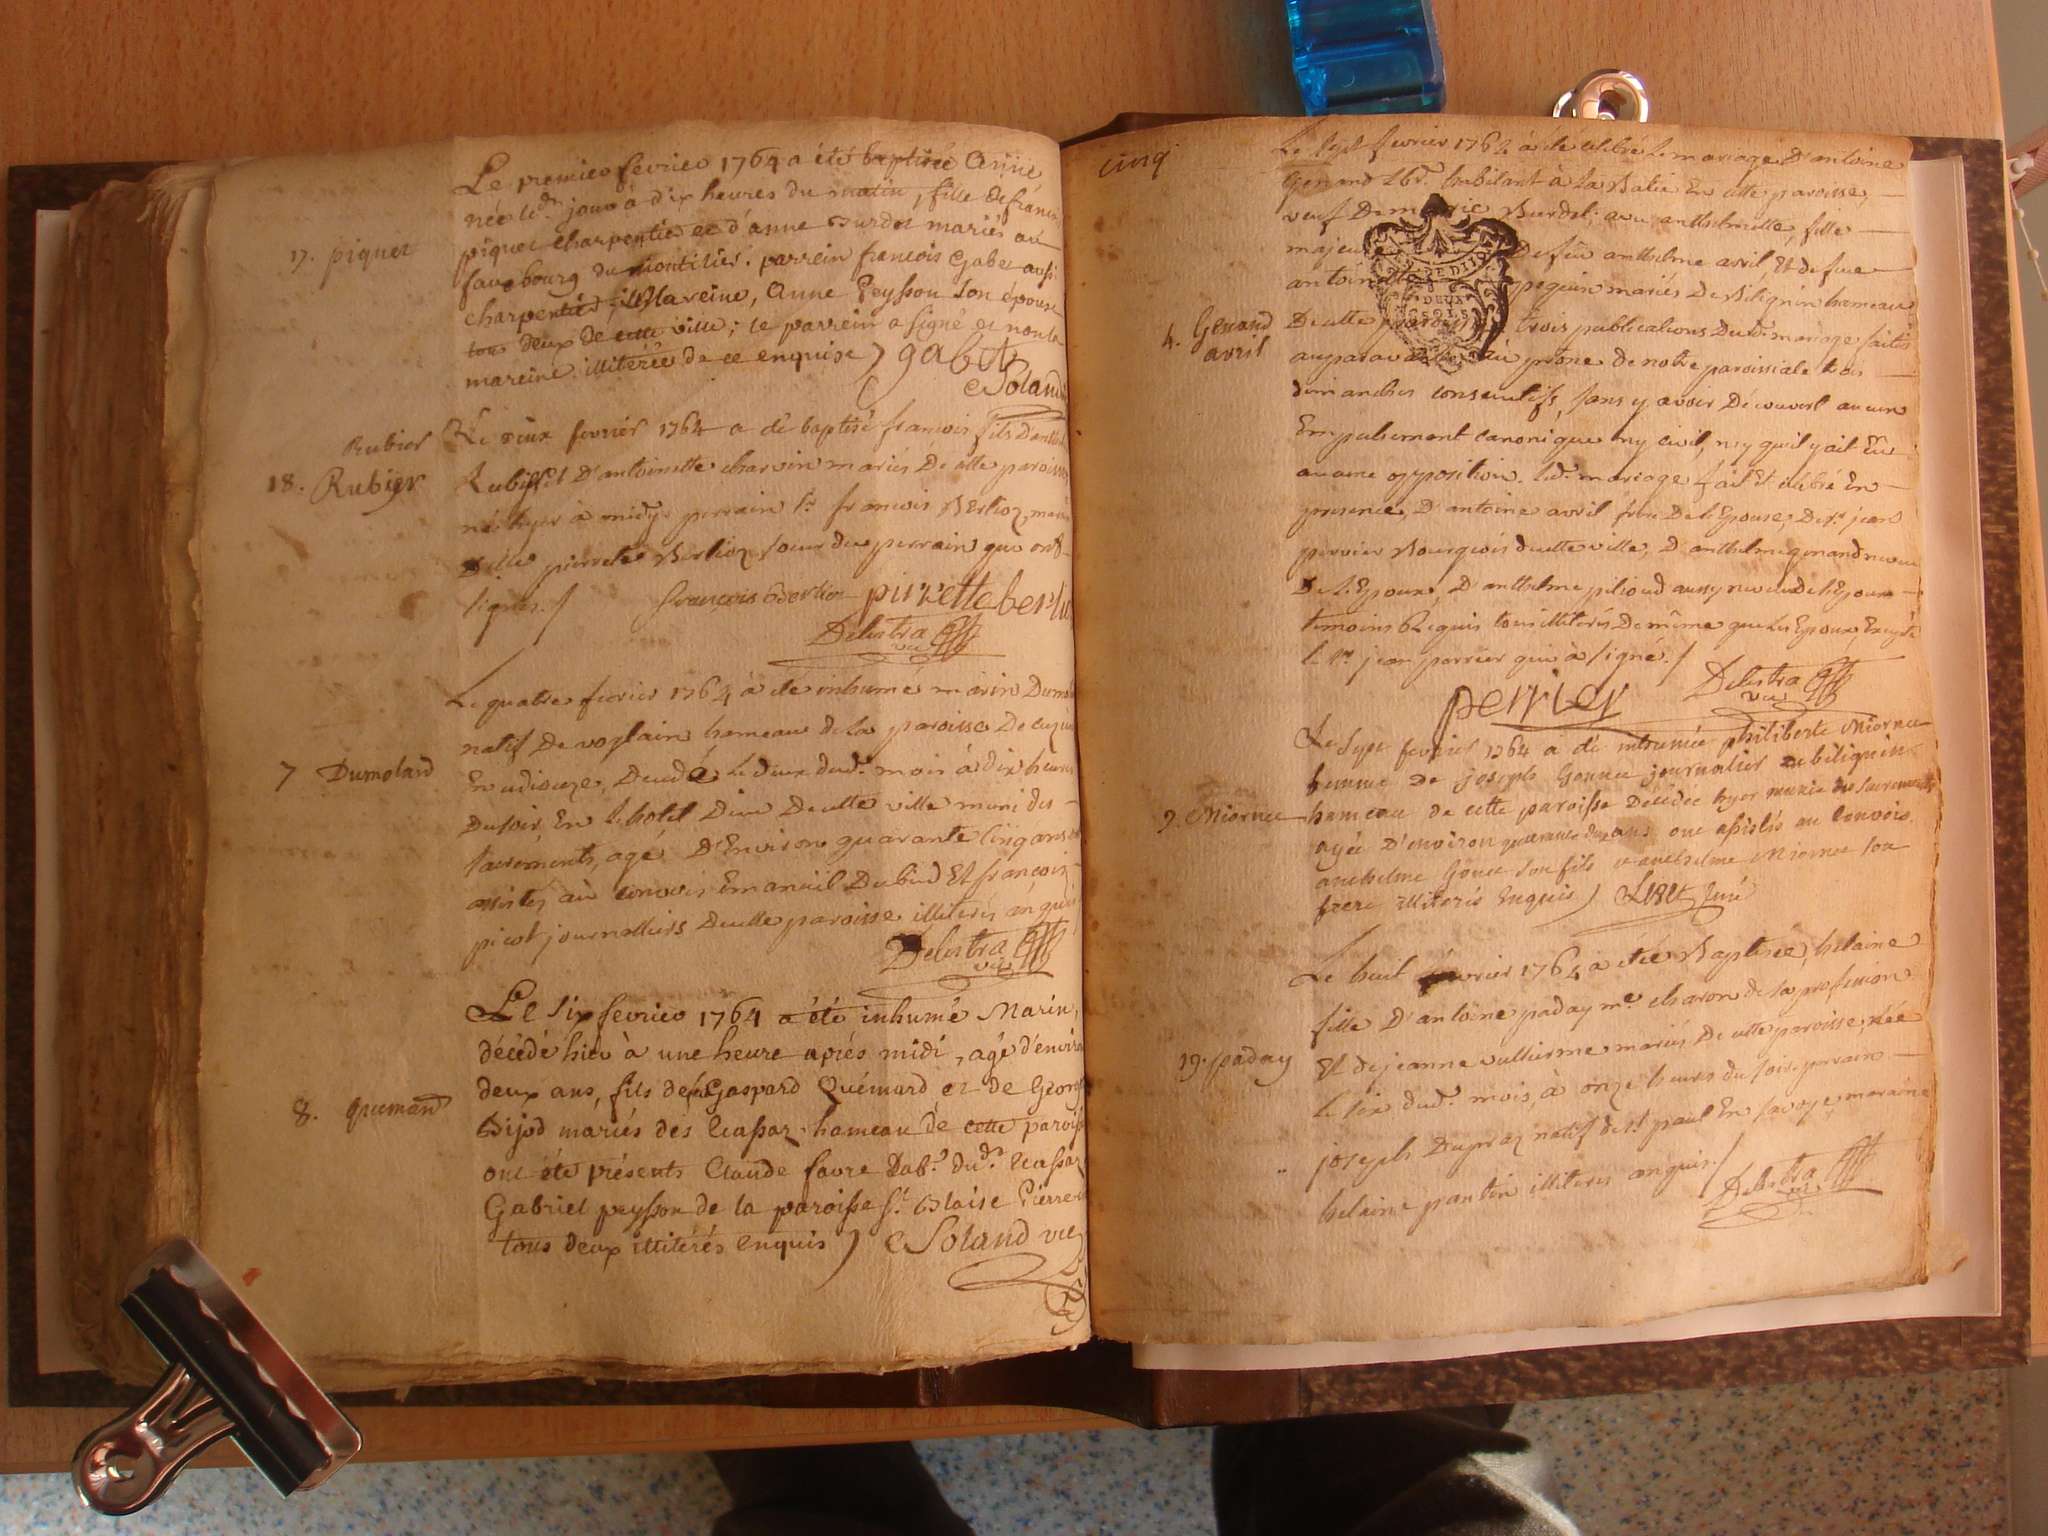 17. piquet
Le premier fevrier 1764 a été baptisée Anne
née led.t jour à dix heures du matin, fille de françois
piquet charpentier et d'anne Burdet mariés au
fauxbourg du montilier. parrein françois Gabet aussi
charpentier, Mareine, Anne Peysson son épouse
tous deux de cette ville; le parrein a signé et non la
mareine illitérée de ce enquise) gabet
Soland
Rubier
18. Rubier
Le deux fevrier 1764 a été baptisé francois fils d'anthel
Rubier et D'antoinette charvin mariés De cette paroisse
né hyer à midy parrain Sr. francois Berlioz, mar
Delle pierrette Berlioz soeur du parrain qui ont
signés./ francois Berlioz pierrette berlio
Delestra vic
7 Dumolard
Le quatre fevrier 1764 à été inhumé marin Dumol
natif De voglain hameau de la paroisse De
En udieuze, Decedé Le deux dud. mois à dix heures
Du soir En L'hotel Dieu De cette ville muni des
sacrements, agé D'Environ quarante cinq ans
assistés au convois Emanuil Dubied Et françois
picot journalliers De cette paroisse illiterés enquis
Delestra vic
8. queman
Le six fevrier 1764 a été inhumé Marin,
décédé hier à une heure après midi, agé d'enviro
deux ans, fils de feu Gaspard Quémard et de George
Dijod mariés des Ecassaz hameau de cette paroiss
ont été présents Claude favre Lab.r dud.t Ecassaz
Gabriel peysson de la paroisse St. Blaise Pierre
tous deux illitérés enquis) Soland vic
cinq
4. Genand
avril
Le sept fevrier 1764 à été célébré Le mariage D'antoine
Genand Lbr. habitant à La Batie En cette paroisse,
veuf De marie Burdet; avec anthelmette, fille
majeure De feu anthelme avril, Et de feue
antoinette pequin mariés De Bilignin hameau
De cette paroisse trois publications Dud. mariage faites
auparavant au prone de notre paroissiale trois
dimanches consecutifs, sans y avoir Découvert aucun
Empechement canonique ny civil, ny qu'il y ait Eû
aucune opposition. led. mariage fait Et célébré En
presence, D'antoine avril frere De L'Epouse, De sr. jean
perrier Bourgeois de cette ville, D'anthelme genand neveu
De L'Epoux, D'anthelme pilioud aussy neveu de L'Epoux
temoins Requis tous illiterés De même que Les Epoux, Excepté
le sr. jean perrier qui à signé./ Delestra vic
perrier
9. Miornee
Le Sept fevrier 1764 a été inhumée philiberte Miornee
femme de joseph Gonnee journalier a bilignin
hameau de cette paroisse Décédée hyer munie des sacrements
agée D'environ quarante deux ans ont assistés au Convois
anthelme Gonee son fils et anthelme Miornee son
frere illiterés Enquis) curé
19. paday
Le huit fevrier 1764 a etée Baptisée, helaine
fille D'antoine paday me. charon de sa profession
Et de jeanne vullierme mariés De cette paroisse, née
le six dud. mois, à onze heures du soir, parrain
joseph Dupraz natif de st. paul En savoye, maraine
helaine pantin illiteres enquis./
Delestra vic